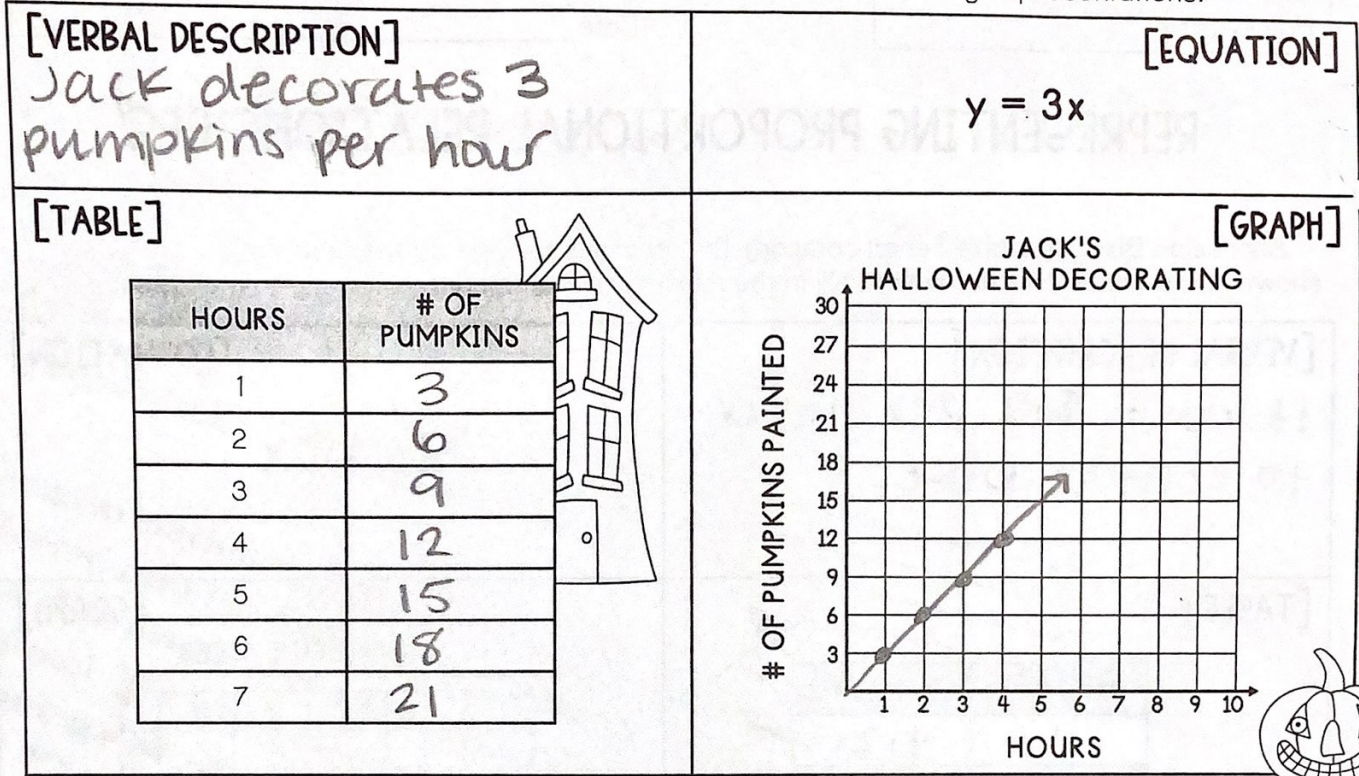 [VERBAL DESCRIPTION]
Jack decorates 3
pumpkins per hour
[EQUATION]
y = 3x
[TABLE]
HOURS # OF PUMPKINS
1 3
2 6
3 9
4 12
5 15
6 18
7 21
[GRAPH]
JACK'S
HALLOWEEN DECORATING
# OF PUMPKINS PAINTED
30
27
24
21
18
15
12
9
6
3
1 2 3 4 5 6 7 8 9 10
HOURS